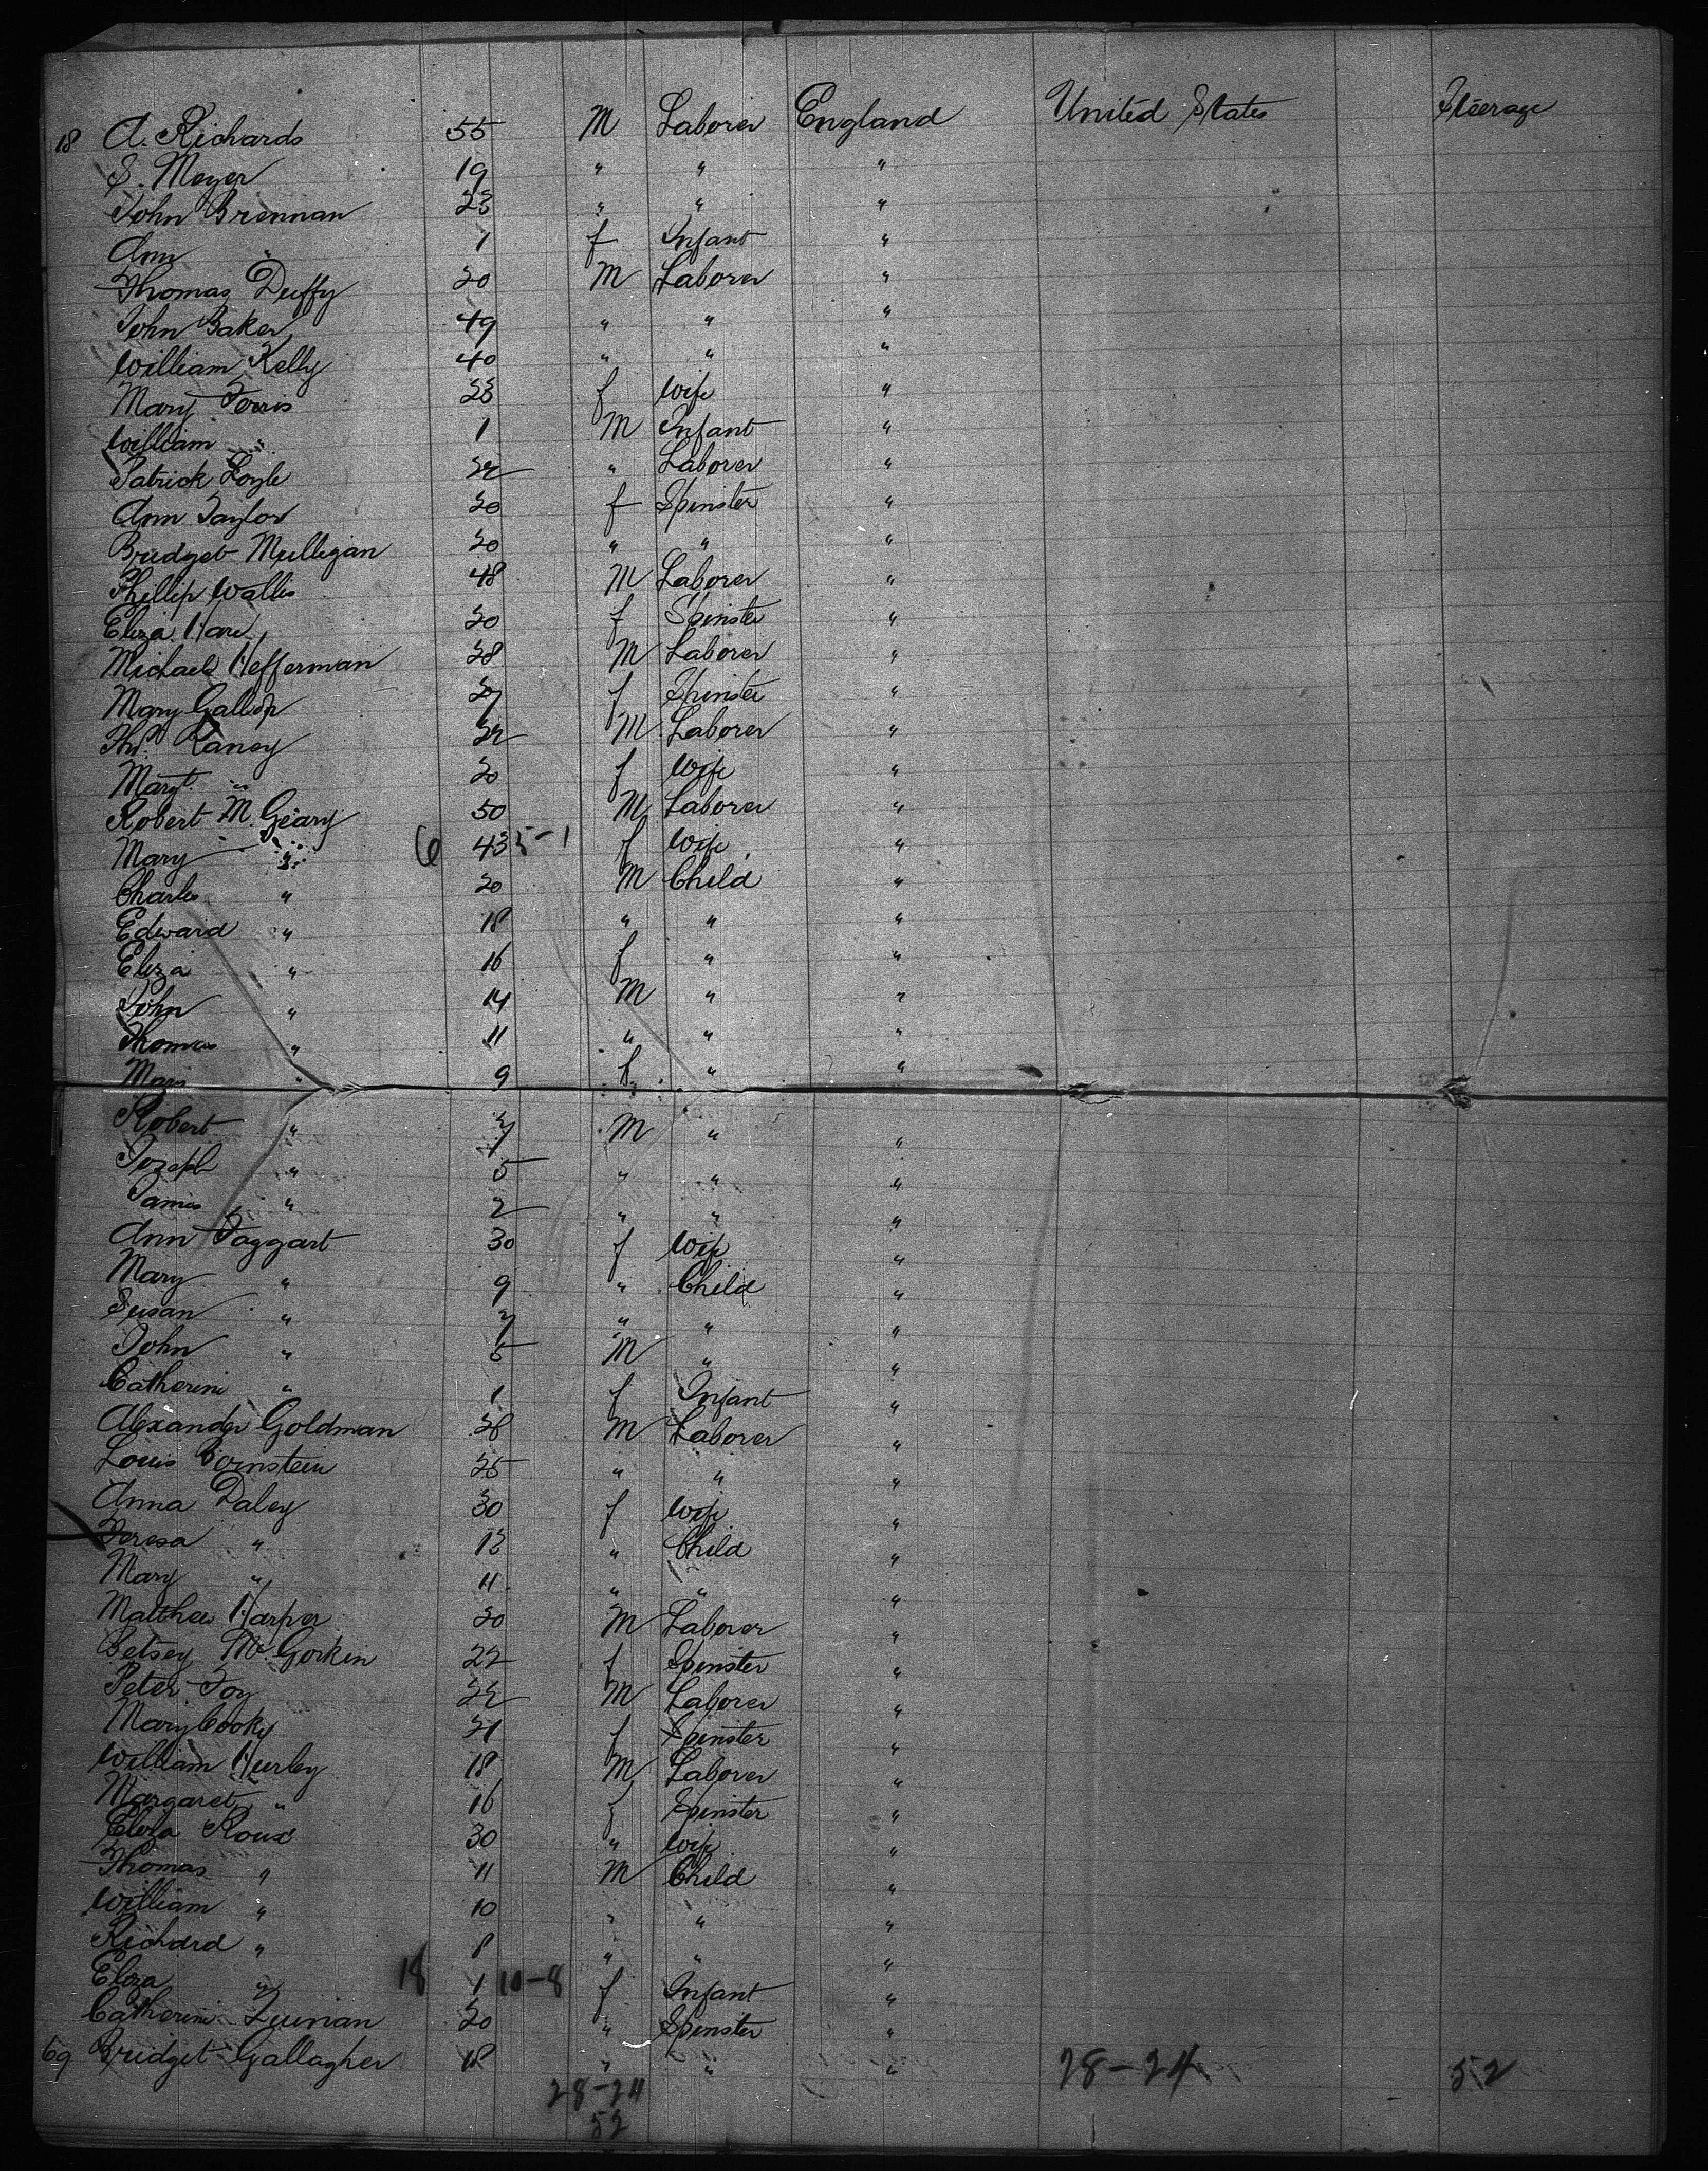 18 A. Richards 55 M Laborer England United States Steerage
S. Meyer 19 " " "
John Brennan 23 " " "
Ann " 1 f Infant "
Thomas Duffy 20 M Laborer "
John Baker 49 " " "
William Kelly 40 " " "
Mary Ferris 23 f Wife "
William " 1 M Infant "
Patrick 22 " Laborer "
Ann Taylor 20 f Spinster "
Bridget Mulligan 20 " " "
Phillip Wallis 48 M Laborer "
Eliza Hare 20 f Spinster "
Michael Hefferman 28 M Laborer "
Mary Gallop 27 f Spinster "
Thos. Raney 22 M Laborer "
Margt. " 20 f Wife "
Robert McGeary 50 M Laborer "
Mary " 6 43 5-1 f Wife "
Charles " 20 M Child "
Edward " 18 " " "
Eliza " 16 f " "
John " 14 M " "
Thomas " 11 " " "
Mary " 9 f " "
Robert " 7 M " "
Joseph " 5 " " "
James " 2 " " "
Ann Taggart 30 f Wife "
Mary " 9 " Child "
Susan " 7 " " "
John " 5 M " "
Catherine " 1 f Infant "
Alexander Goldman 28 M Laborer "
Louis Bornstein 25 " " "
Anna Daley 30 f Wife "
Teresa " 12 " Child "
Mary " 11 " " "
Matthew Harper 20 M Laborer "
Betsey McGorkin 22 f Spinster "
Peter Foy 22 M Laborer "
Mary Cooky 21 f Spinster "
William Hurley 18 M Laborer "
Margaret " 16 f Spinster "
Eliza Roux 30 " Wife "
Thomas " 11 M Child "
William " 10 " " "
Richard " 8 " " "
Eliza " 18 1 10-8 f Infant "
Catherine Quinan 20 " Spinster "
69 Bridget Gallagher 18 " " " 28-24 52
28-24
52